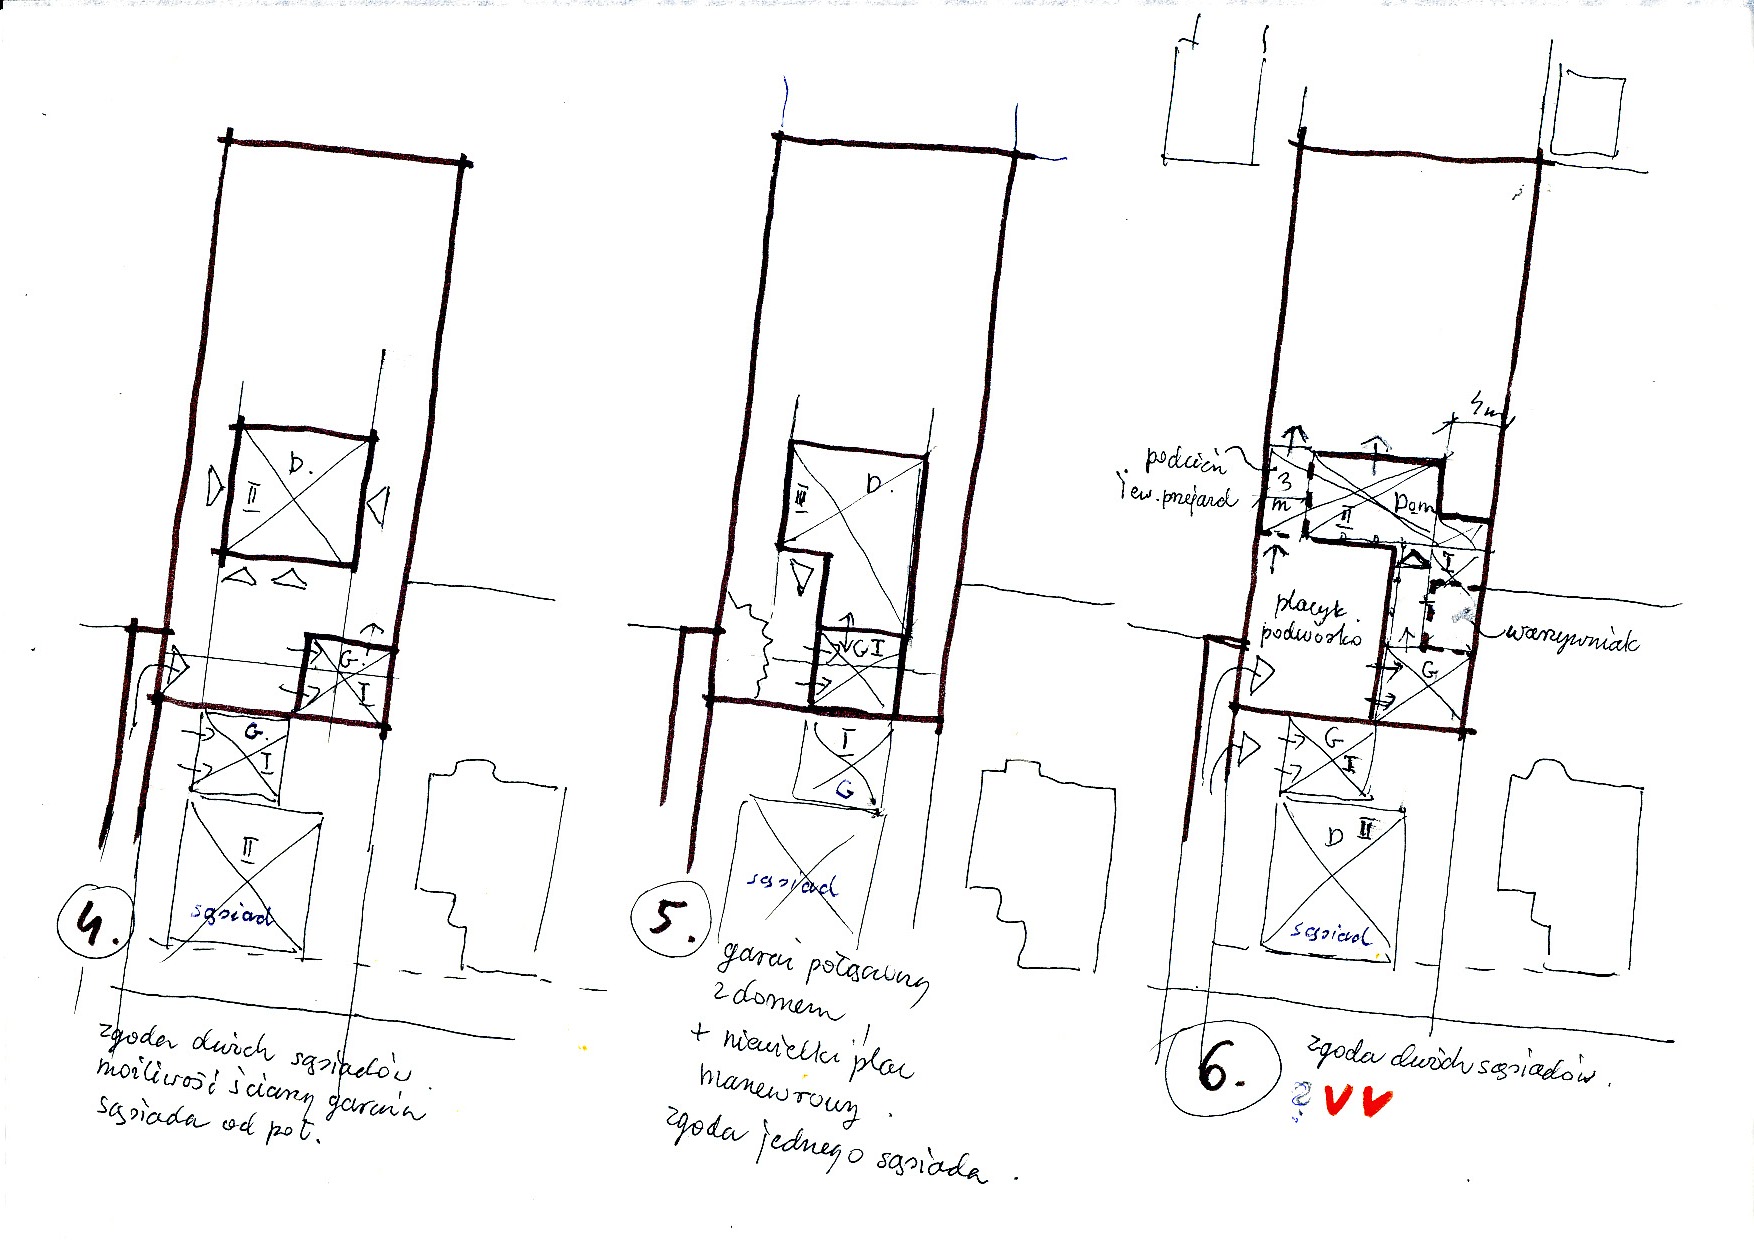 D.
II
G.
I
G.
I
II
sąsiad
4.
zgoda dwóch sąsiadów.
możliwość ściany garaża
sąsiada od poł.
D.
III
G I
I
G
sąsiad
5.
garaż połączony
z domem
+ niewielki plac
manewrowy.
zgoda jednego sąsiada.
4m
podcień
i ew. przejazd
3
m
Dom
II
I
placyk
podwórko
warzywniak
G
G
I
D II
sąsiad
6.
zgoda dwóch sąsiadów.